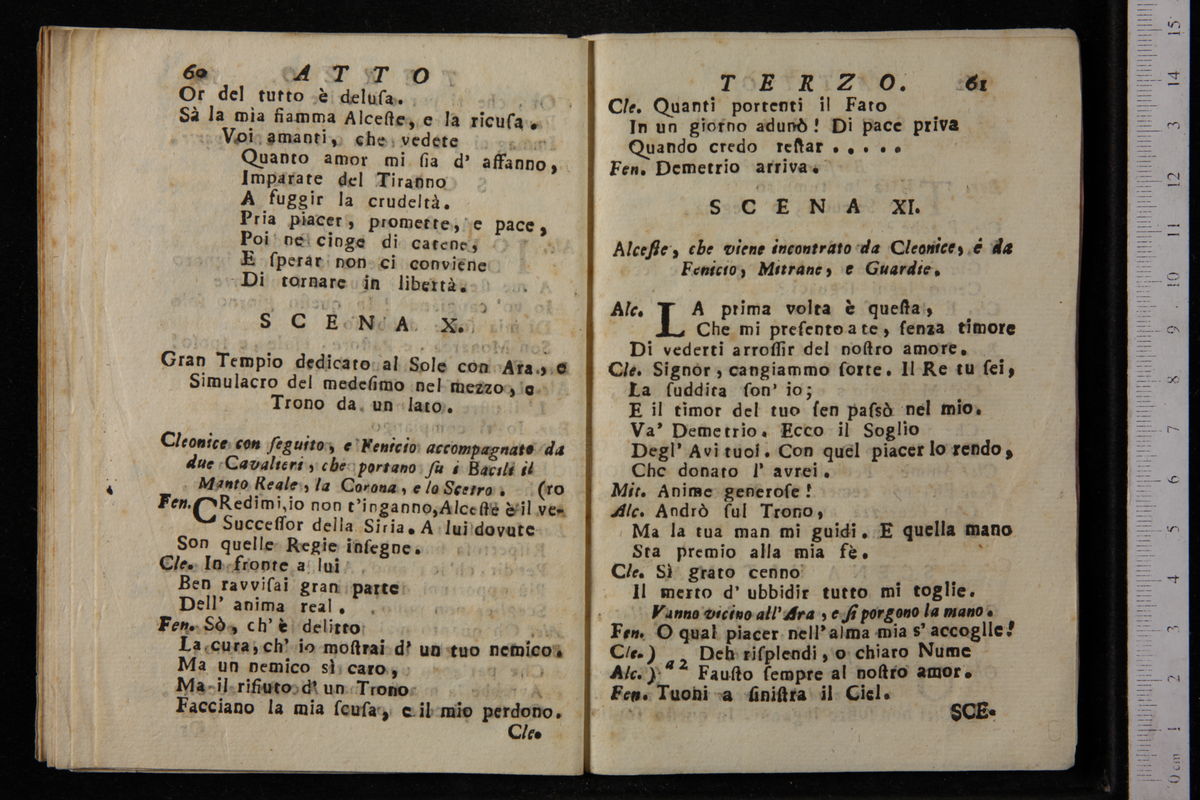 60 ATTO
Or del tutto è deluſa.
Sà la mia fiamma Alceſte, e la ricuſa.
Voi amanti, che vedete
Quanto amor mi ſia d' affanno,
Imparate del Tiranno
A fuggir la crudeltà.
Pria piacer, promette, e pace,
Poi ne cinge di catene,
E ſperar non ci conviene
Di tornare in libertà.
SCENA X.
Gran Tempio dedicato al Sole con Ara, e
Simulacro del medeſimo nel mezzo, e
Trono da un lato.
Cleonice con ſeguito, e Fenicio accompagnato da
due Cavalieri, che portano ſu i Bacili il
Manto Reale, la Corona, e lo Scetro. (ro
Fen. CRedimi, io non t'inganno, Alceſte è il ve-
Succeſſor della Siria. A lui dovute
Son quelle Regie inſegne.
Cle. In fronte a lui
Ben ravviſai gran parte
Dell' anima real.
Fen. Sò, ch' è delitto
La cura, ch' io moſtrai d' un tuo nemico.
Ma un nemico sì caro,
Ma il rifiuto d' un Trono
Facciano la mia ſcuſa, e il mio perdono.
Cle.
TERZO. 61
Cle. Quanti portenti il Fato
In un giorno adunò! Di pace priva
Quando credo reſtar . . . . .
Fen. Demetrio arriva.
SCENA XI.
Alceſte, che viene incontrato da Cleonice, e da
Fenicio, Mitrane, e Guardie.
Alc. LA prima volta è queſta,
Che mi preſento a te, ſenza timore
Di vederti arroſſir del noſtro amore.
Cle. Signor, cangiammo ſorte. Il Re tu ſei,
La ſuddita ſon' io;
E il timor del tuo ſen paſsò nel mio.
Va' Demetrio. Ecco il Soglio
Degl' Avi tuoi. Con quel piacer lo rendo,
Che donato l' avrei.
Mit. Anime generoſe!
Alc. Andrò ſul Trono,
Ma la tua man mi guidi. E quella mano
Sta premio alla mia fè.
Cle. Sì grato cenno
Il merto d' ubbidir tutto mi toglie.
Vanno vicino all' Ara, e ſi porgono la mano.
Fen. O qual piacer nell' alma mia s' accoglie!
Cle. ) a 2 Deh riſplendi, o chiaro Nume
Alc. ) Fauſto ſempre al noſtro amor.
Fen. Tuoni a ſiniſtra il Ciel.
SCE.